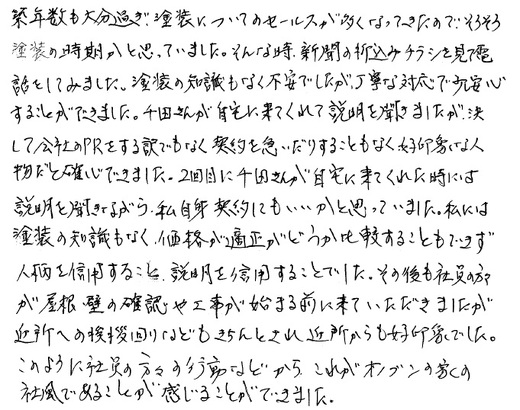 築年数も大分過ぎ、塗装についてのセールスが多くなってきたので、そろそろ
塗装の時期かと思っていました。そんな時、新聞の折込みチラシを見て電
話をしてみました。塗装の知識もなく不安でしたが、丁寧な対応で安心
することができました。千田さんが自宅に来てくれて説明を聞きましたが、決
して会社のPRをする訳でもなく契約を急いだりすることもなく好印象な人
物だと確心できました。2回目に千田さんが自宅に来てくれた時には
説明を聞きながら、私自身契約してもいいかと思っていました。私には
塗装の知識もなく、価格が適正かどうか比較することもできず
人柄を信用すること、説明を信用することでした。その後も社員の方
が屋根、壁の確認や工事が始まる前に来ていただきましたが
近所への挨拶回りなどもきちんとされ近所からも好印象でした。
このように社員の方々の行動などから、これがオノブンの家の
社風であることが感じることができました。